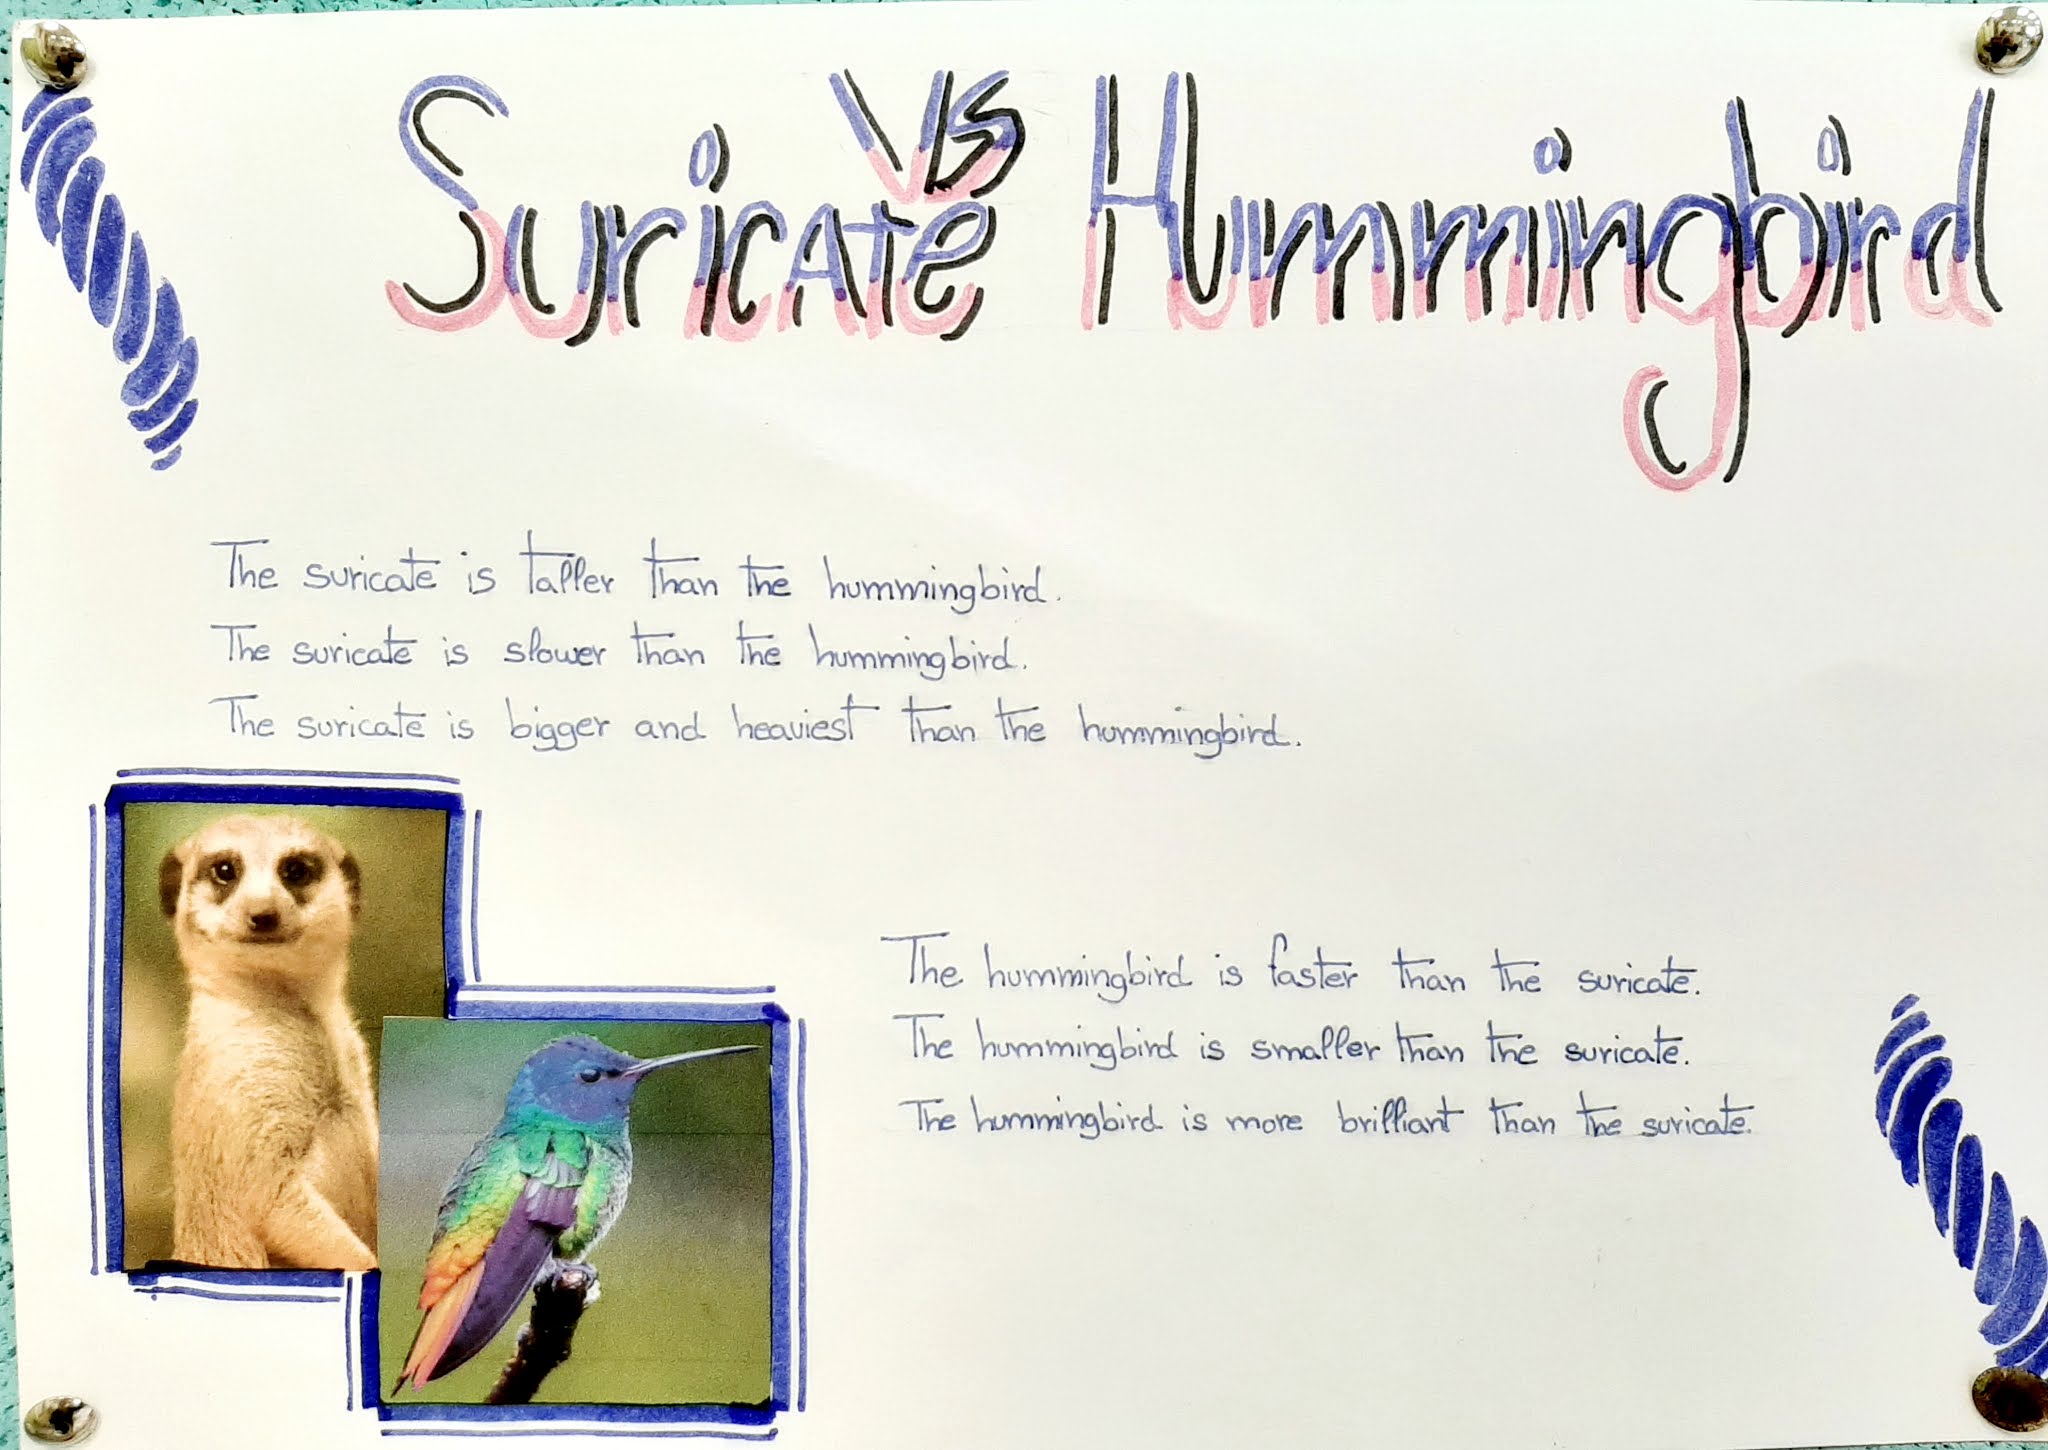 Suricate Vs Hummingbird
The suricate is taller than the hummingbird.
The suricate is slower than the hummingbird.
The suricate is bigger and heaviest than the hummingbird.
The hummingbird is faster than the suricate.
The hummingbird is smaller than the suricate.
The hummingbird is more brilliant than the suricate.